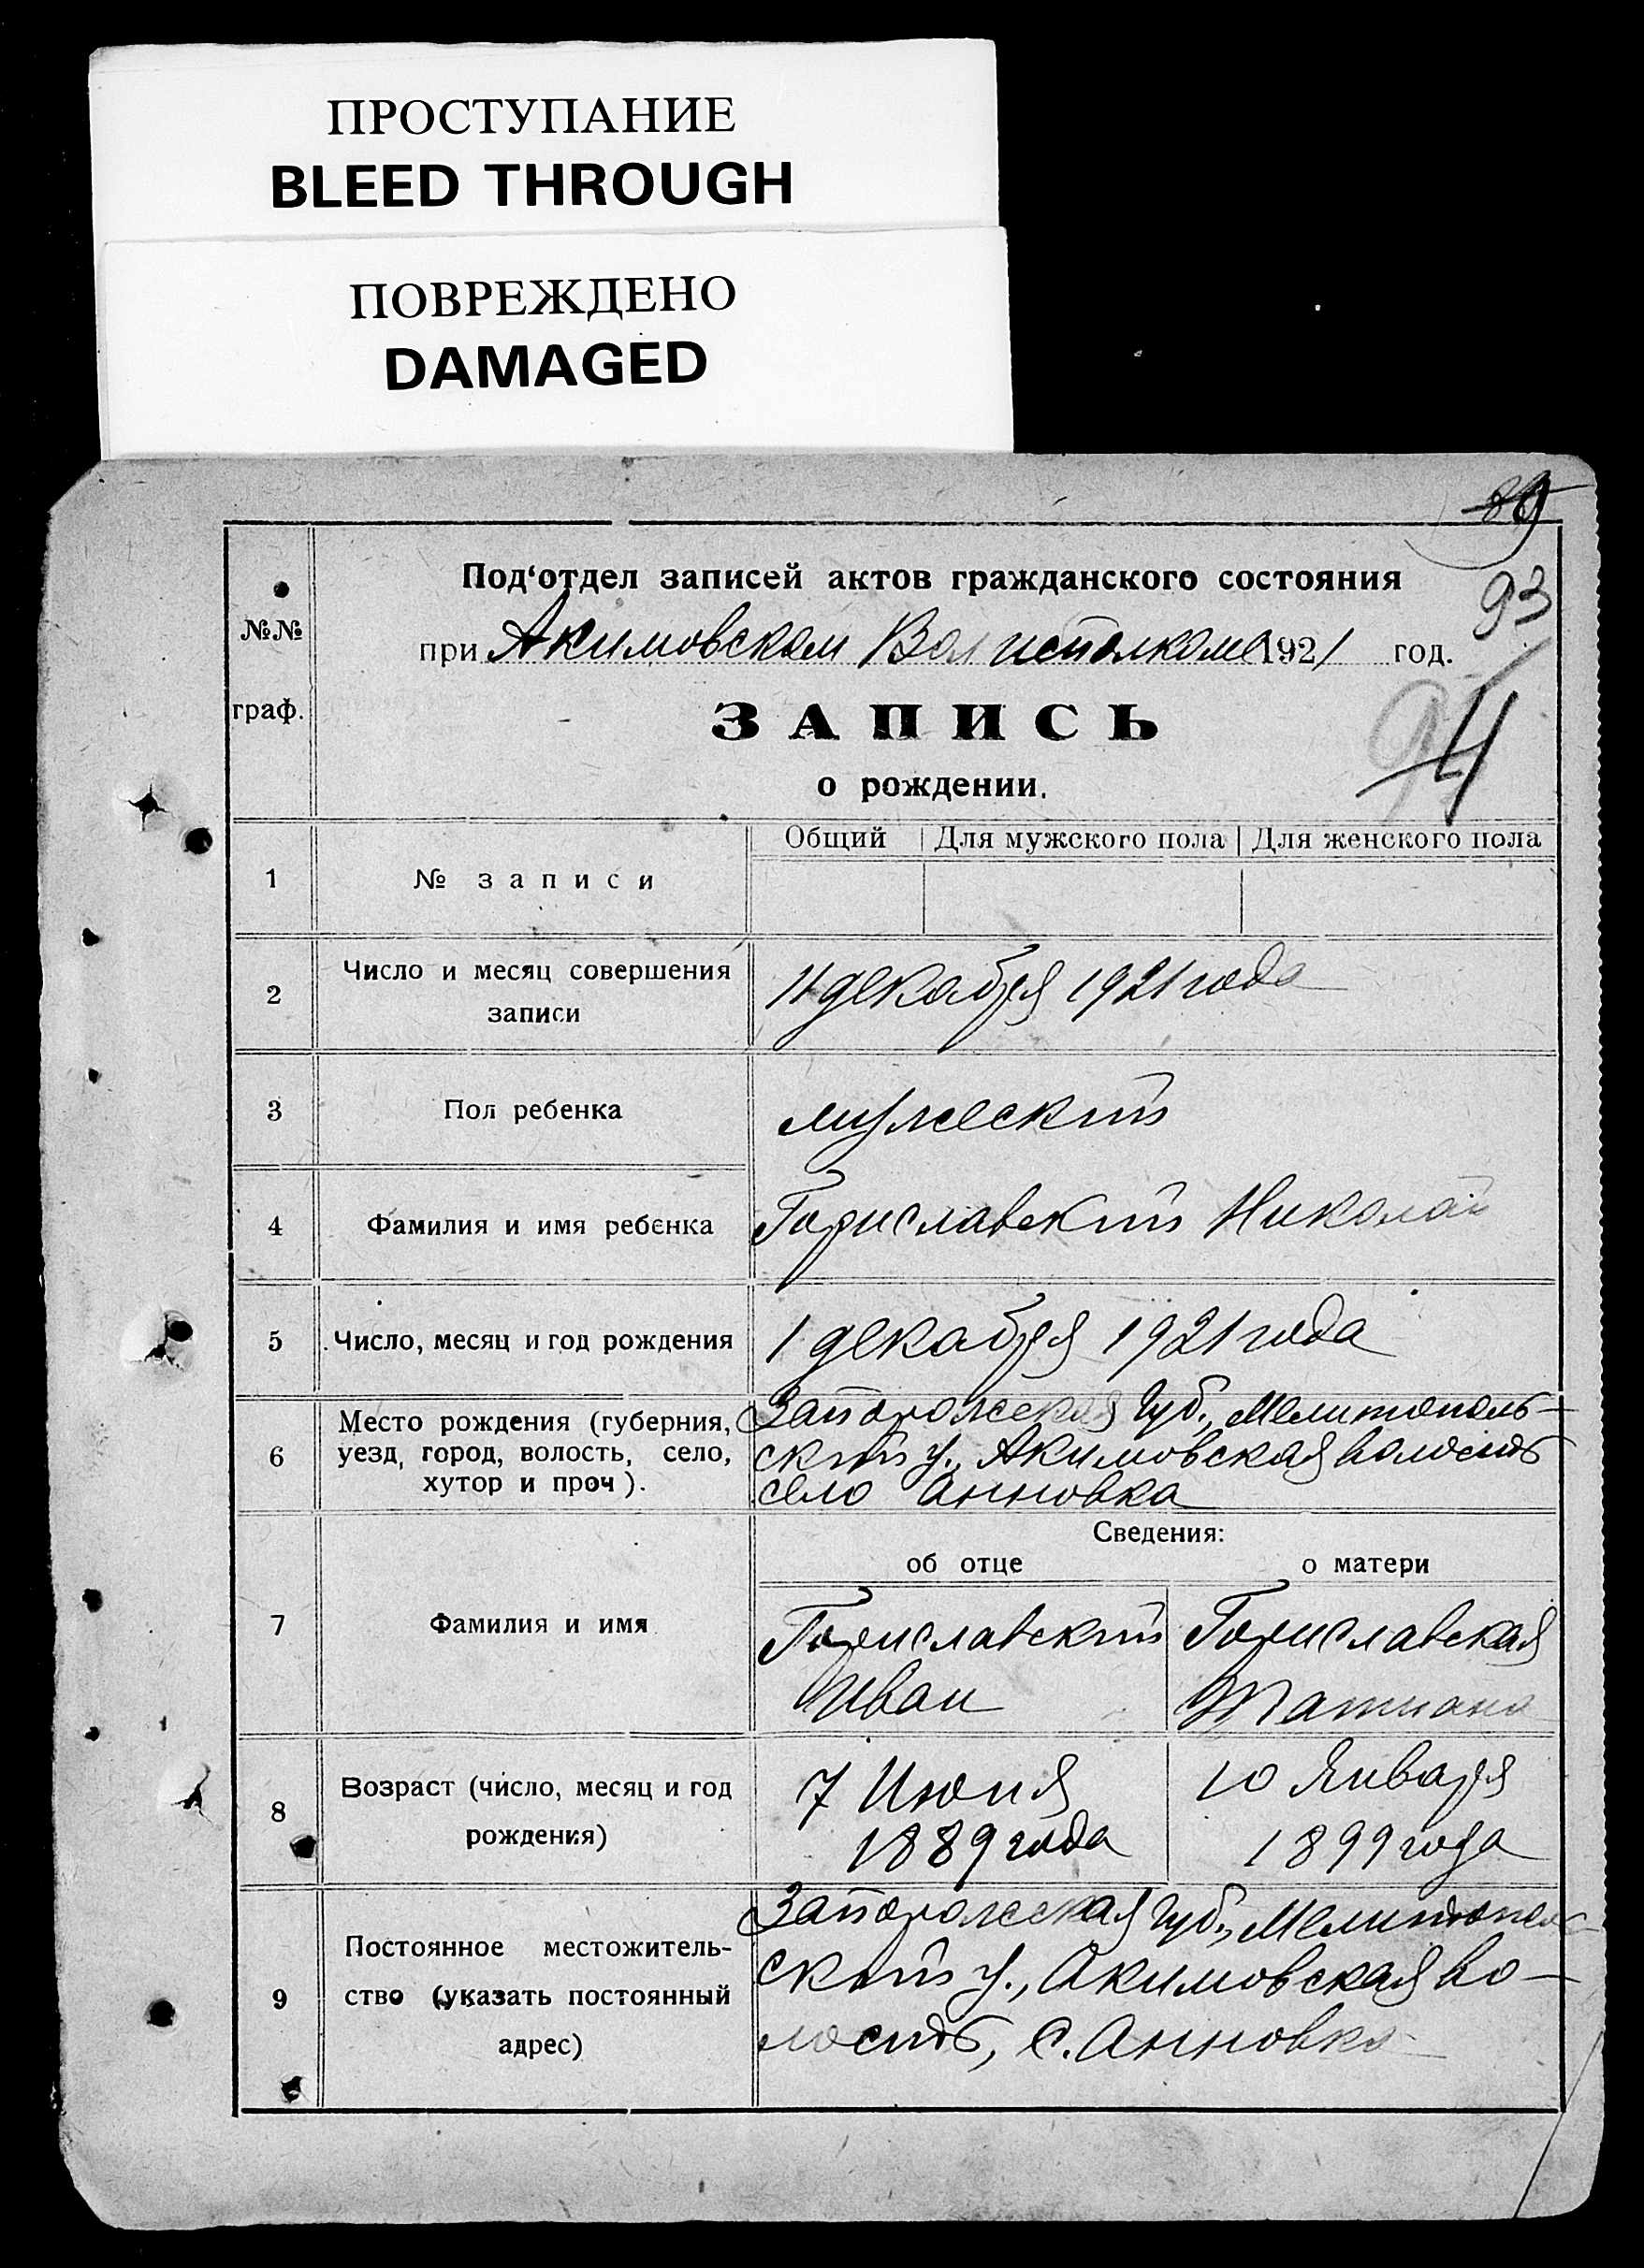 ПРОСТУПАНИЕ
BLEED THROUGH
ПОВРЕЖДЕНО
DAMAGED
89
93
Под‘отдел записей актов гражданского состояния
№№
граф.
при Акимовском Волисполкоме 1921 год.
ЗАПИСЬ
о рождении.
Общий Для мужского пола Для женского пола
1 № записи
2 Число и месяц совершения
записи
11 декабря 1921 года
3 Пол ребенка мужеский
4 Фамилия и имя ребенка Гориславский Николай
5 Число, месяц и год рождения 1 декабря 1921 года
6 Место рождения (губерния,
уезд, город, волость, село,
хутор и проч).
Запорожская губ., Мелитополь-
ский у., Акимовская волость
село Анновка
Сведения:
об отце о матери
7 Фамилия и имя
Гориславский Гориславская
Иван Татиана
8 Возраст (число, месяц и год
рождения)
7 Июня 10 Января
1889 года 1899 года
9 Постоянное местожитель-
ство (указать постоянный
адрес)
Запорожская губ., Мелитополь-
ский у., Акимовская во-
лость, с. Анновка